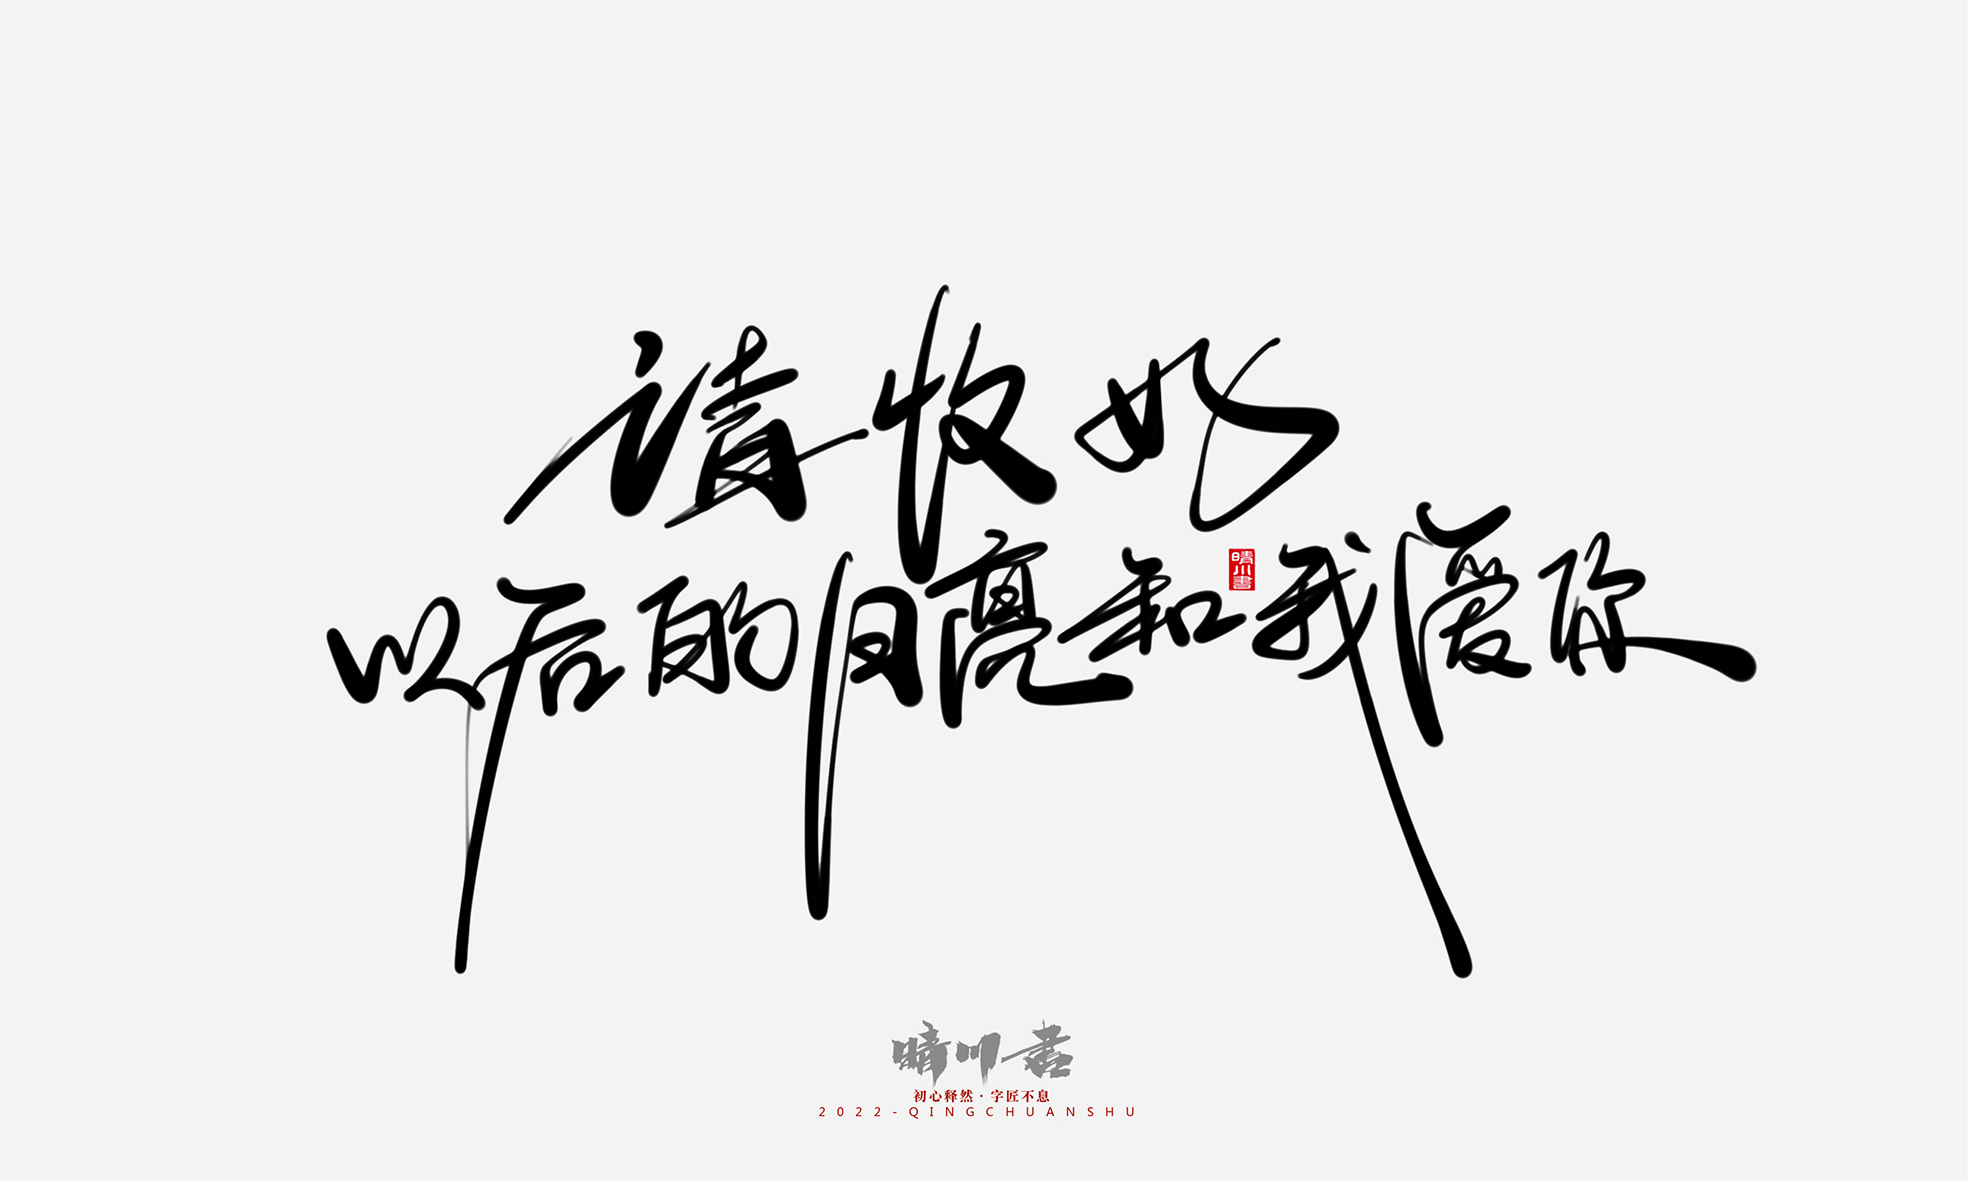 请收好
以后的月亮和我爱你
晴川書
晴川书
初心释然·字匠不息
2022-QINGCHUANSHU